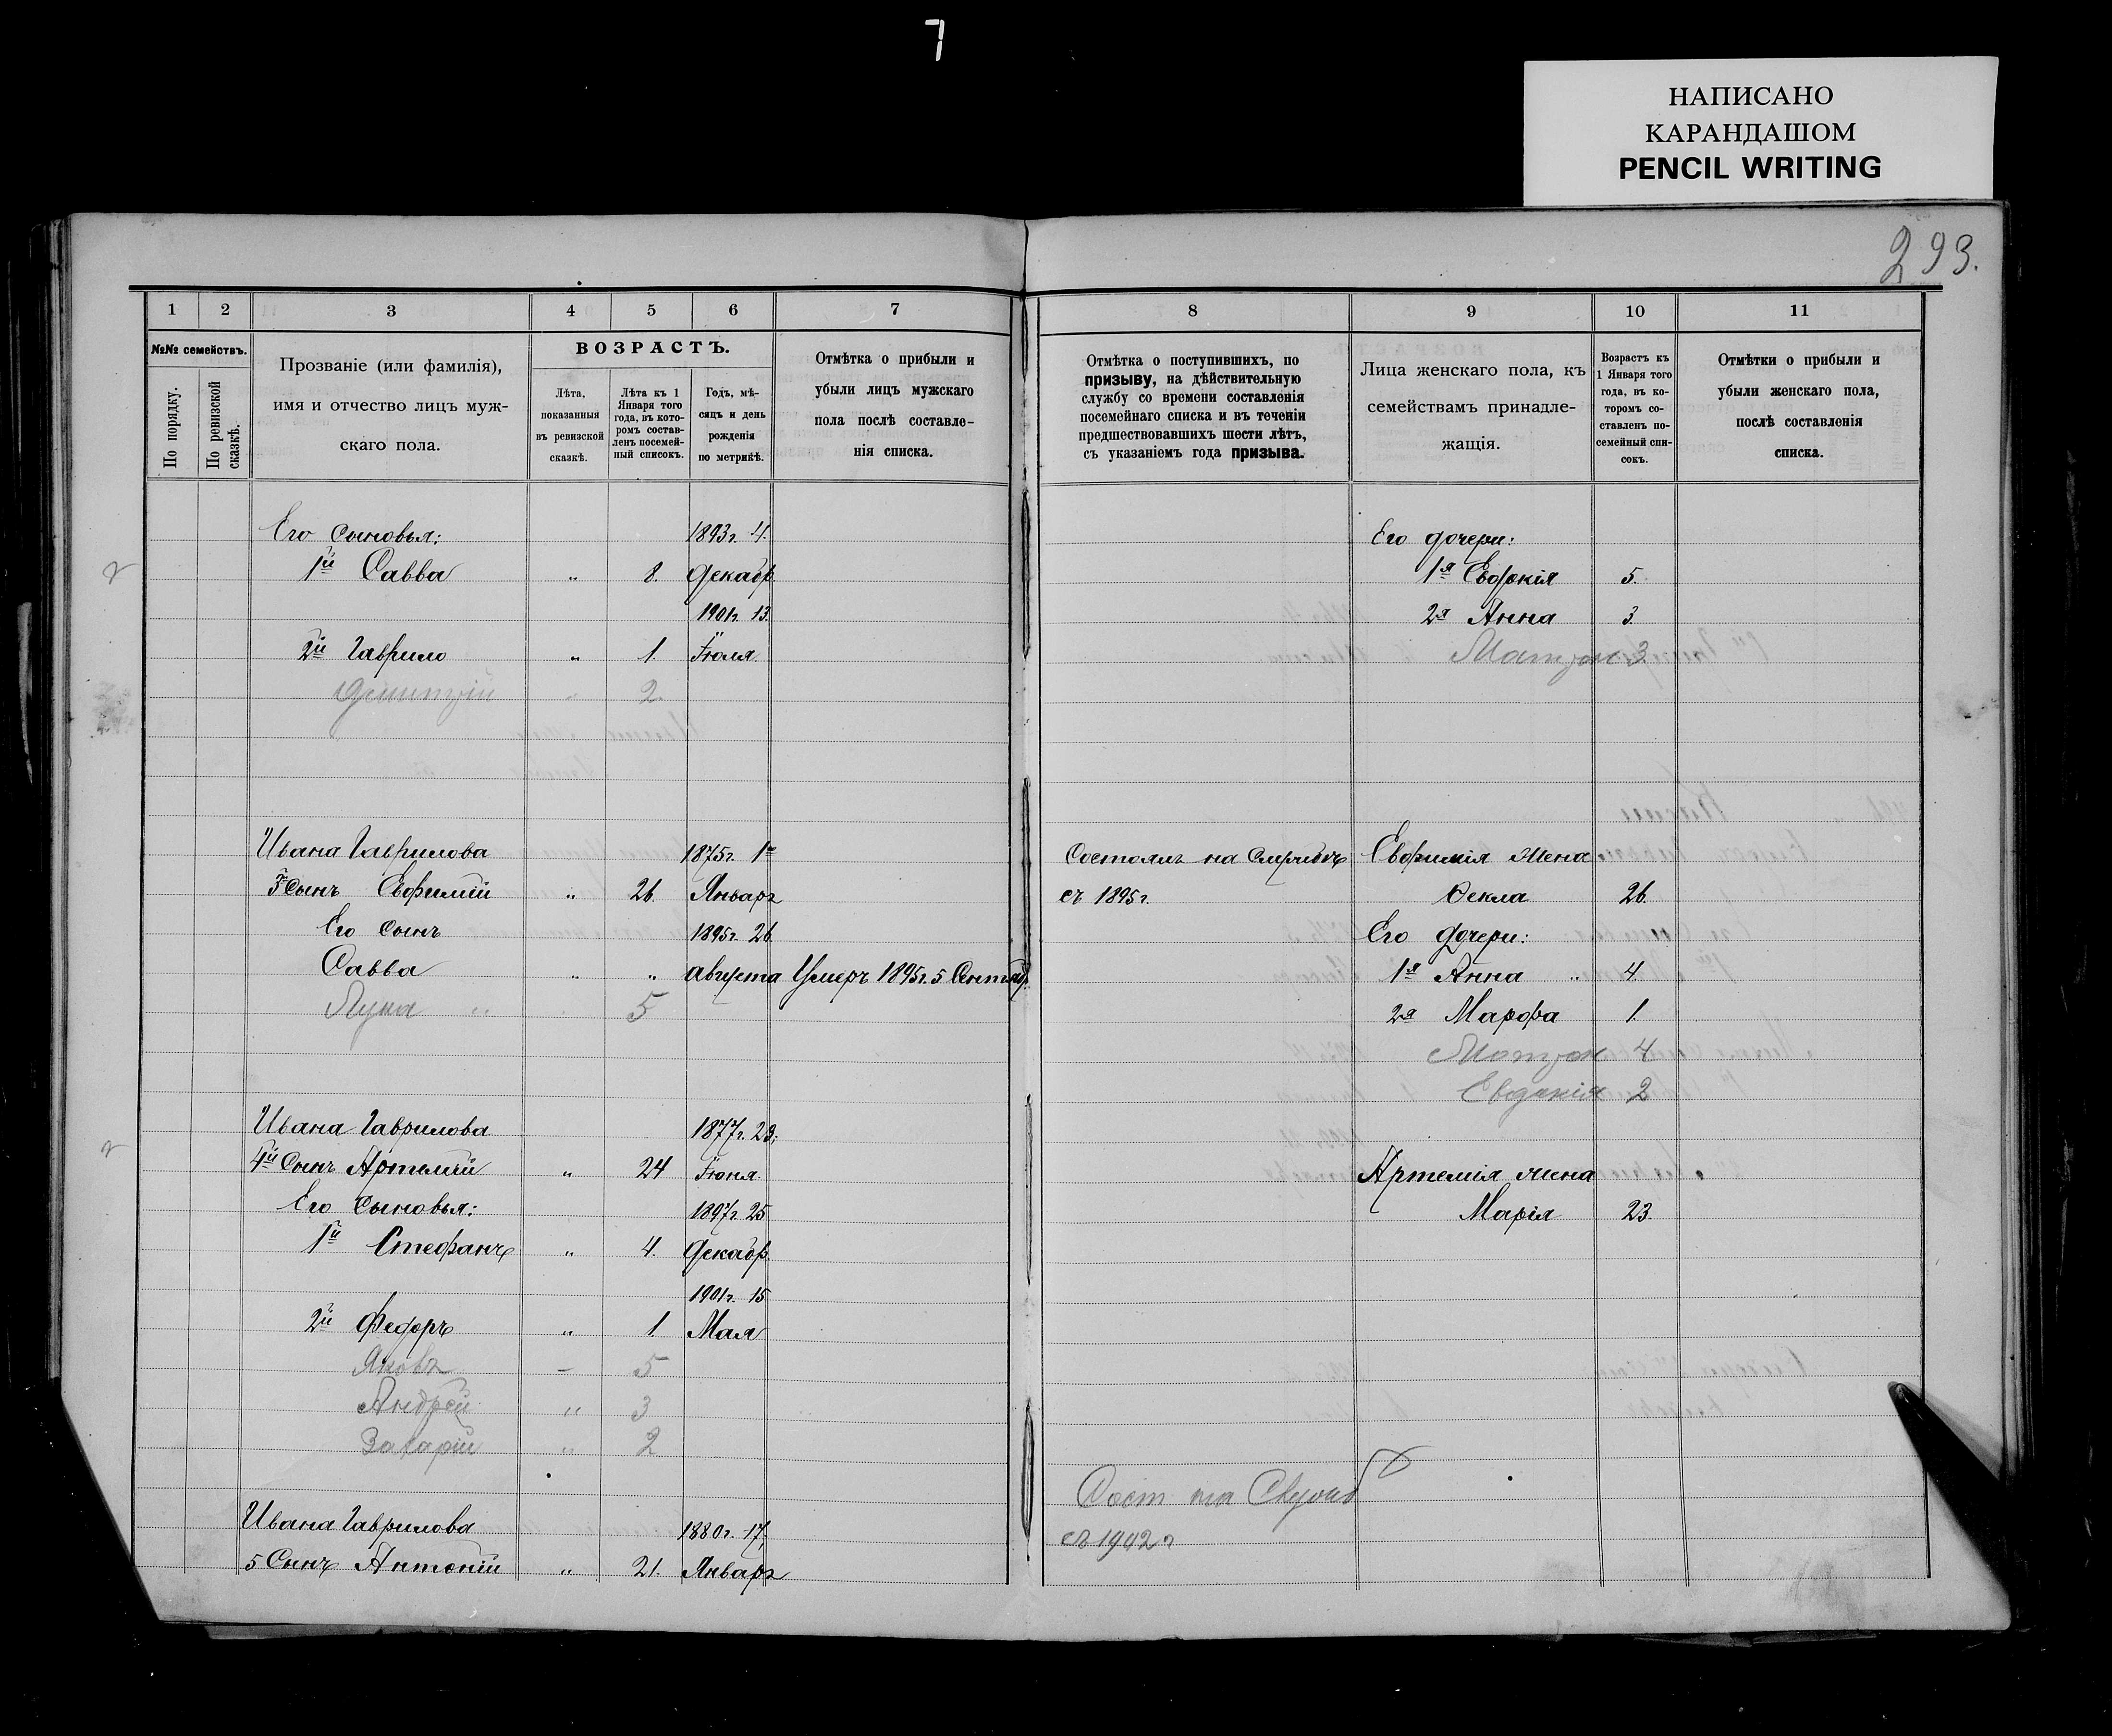 7
НАПИСАНО
КАРАНДАШОМ
PENCIL WRITING
293.
1 2 3 4 5 6 7
№№ семействъ.
По порядку.
По ревизской сказкѣ.
Прозваніе (или фамилія),
имя и отчество лицъ муж-
скаго пола.
ВОЗРАСТЪ.
Лѣта,
показанныя
въ ревизской
сказкѣ.
Лѣта къ 1
Января того
года, въ кото-
ромъ состав-
ленъ посемей-
ный список.
Годъ, мѣ-
сяцъ и день
рожденія
по метрикѣ.
Отмѣтка о прибыли и
убыли лицъ мужскаго
пола послѣ составле-
нія списка.
Его сыновья: 1893г. 4.
1й Савва " 8. Декабр
1901г. 13.
2й Гаврило " 1. Іюля.
Димитрій " 2.
Ивана Гаврилова 1875г. 1го
3 Сынъ Евфимій " 26. Январ
Его сынъ 1895г. 26
Савва " " августа Умеръ 1895г. 5 Сентяб.
Лука " 5
Ивана Гаврилова 1877г. 23.
4й Сынъ Артемій " 24 Іюня.
Его сыновья: 1897г. 25
1й Стефанъ " 4. Декабр.
1901г. 15
2й Федоръ " 1. Мая
Яковъ – 5
Андрей " 3
Захарій " 2
Ивана Гаврилова 1880г. 17.
5 Сынъ Антоній " 21. Январ
8 9 10 11
Отмѣтка о поступившихъ, по
призыву, на дѣйствительную
службу со времени составленія
посемейнаго списка и въ теченіи
предшествовавшихъ шести лѣтъ,
съ указаніемъ года призыва.
Лица женскаго пола, къ
семействамъ принадле-
жащія.
Возрастъ къ
1 Января того
года, въ ко-
торомъ со-
ставленъ по-
семейный спи-
сокъ.
Отмѣтки о прибыли и
убыли женскаго пола,
послѣ составленія
списка.
Его дочери:
1я Евдокія 5.
2я Анна 3.
Матрон 3.
Состоялъ на Службѣ Евфимія жена
съ 1895г. Ѳекла 26.
Его дочери:
1я Анна " 4.
2я Марфа 1.
Матрон 4
Евдокія 2
Артемія жена
Марія 23.
Сост на
съ 1902г